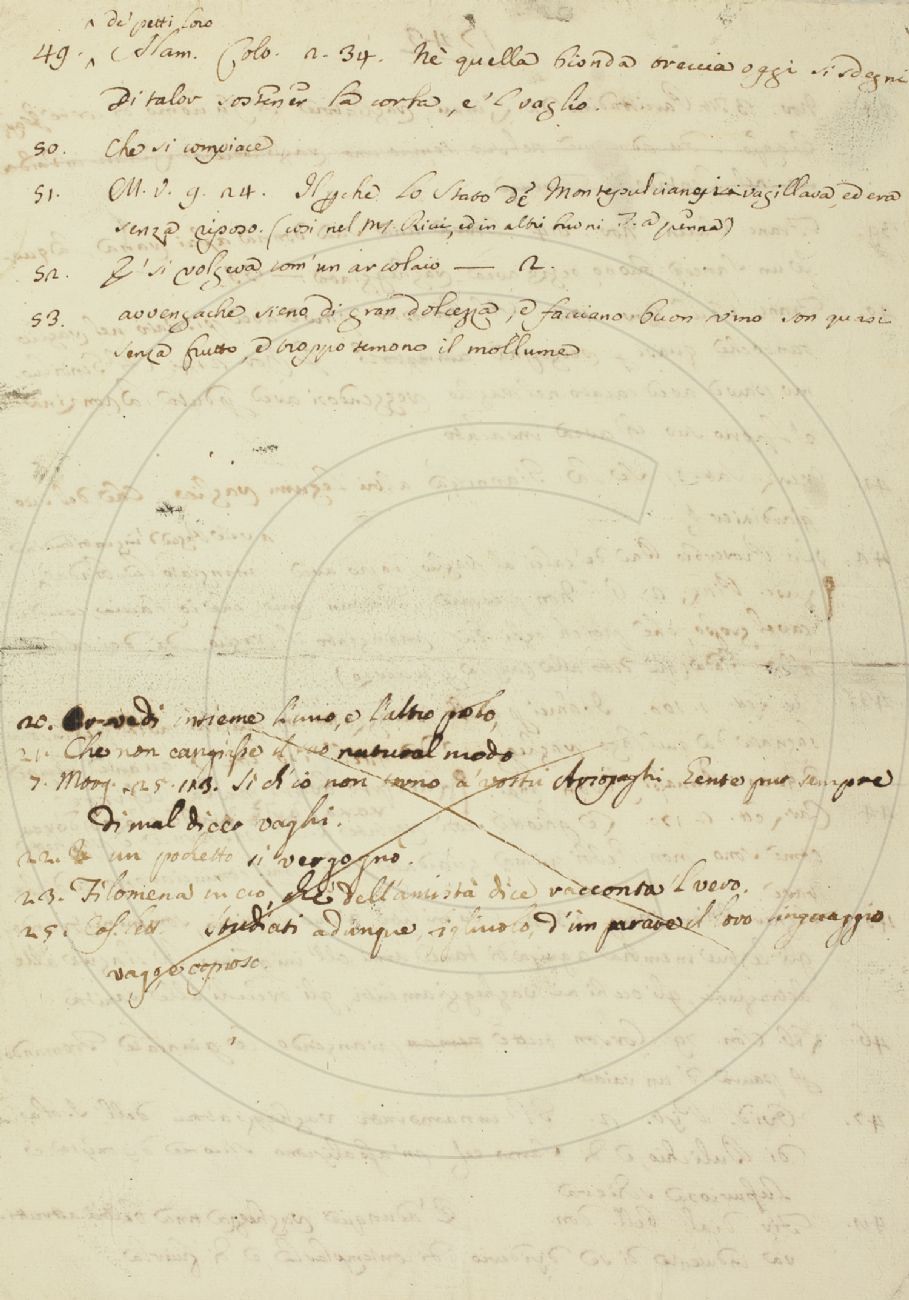 de' petti loro
49. Alam. Colo. 2. 34. Nè quella bionda oreccia oggi si sdegni
Di talor sostener la corba, e 'l vaglio.
50. Che si compiace
51. M. V. 9. 24. Il perchè lo Stato de' Montepulciano vagillava, ed era
senza riposo. (così nel Ms. Ricci, ed in altri buoni T. a penna)
52. E' si volgeva com' un arcolaio — 2.
53. avvengache sieno di gran dolcezza, e facciano buon vino son quasi
senza frutto, e troppo temono il mollume
20. Or vedi insieme l'uno, e l'altro polo,
21. Che non cangiasse il suo natural modo
7. Morg. 25. 113. Sì ch'io non torno a' vostri Areopaghi, Gente pur sempre
Di mal dicer vaghi.
22. un pochetto si vergognò.
23. Filomena in ciò, che dell'amistà dice racconta 'l vero.
25. Studiati adunque, figliuolo, d'imparare il loro linguaggio
vago, e copioso.